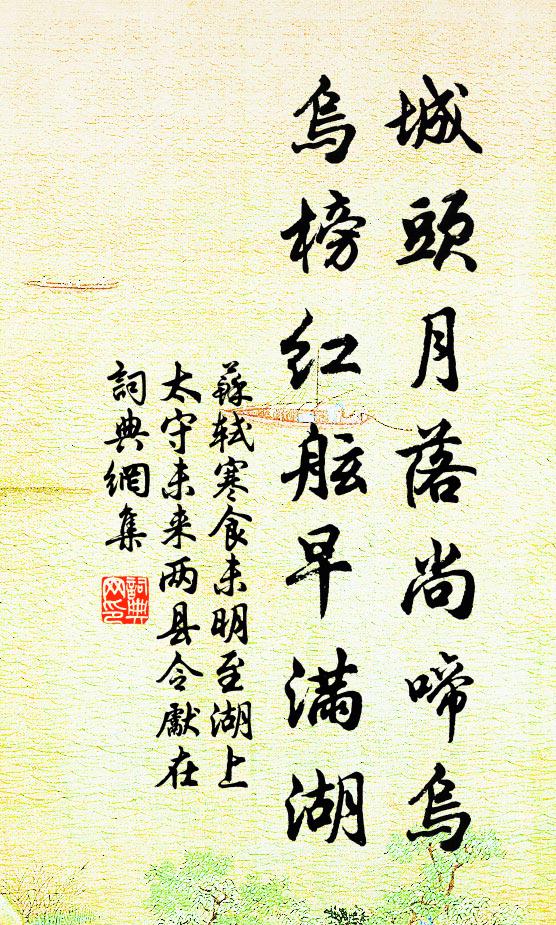 城頭月落尚啼烏
烏榜红舷早满湖
蘇軾寒食未明至湖上
太守未来两县令獻在
詞典網集
詞典
网印